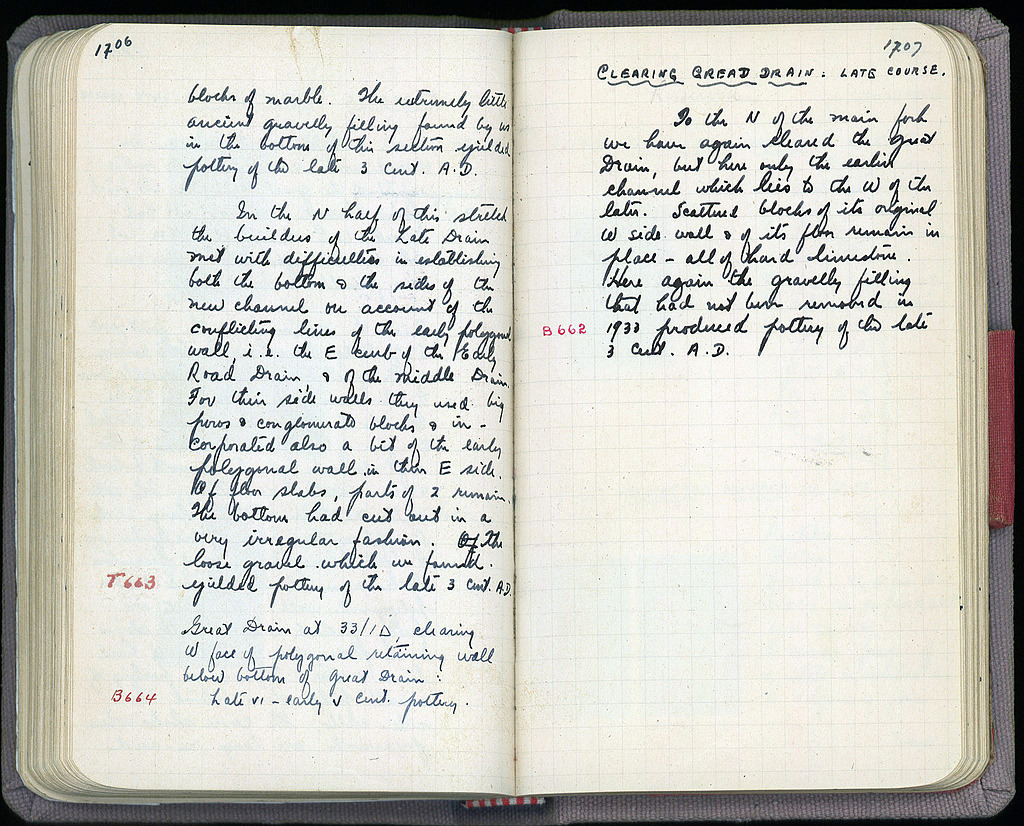 1706
blocks of marble. The extremely little
ancient gravelly filling found by us
in the bottom of this section yielded
pottery of the late 3 cent. A.D.
In the N half of this stretch
the builders of the Late Drain
met with difficulties in establishing
both the bottom & the sides of the
new channel on account of the
conflicting lines of the early polygonal
wall, i.e. the E curb of the Early
Road Drain, & of the middle Drain.
For their side walls they used big
poros & conglomerate blocks & in-
corporated also a bit of the early
polygonal wall in their E side.
Of floor slabs, parts of 2 remain.
The bottom had cut out in a
very irregular fashion. Of the
loose gravel which we found
T663 yielded pottery of the late 3 cent. A.D.
Great Drain at 33/1Δ, clearing
W face of polygonal retaining wall
below bottom of Great Drain:
B664 Late VI - early V cent. pottery.
1707
CLEARING GREAD DRAIN: LATE COURSE.
To the N of the main fork
we have again cleared the Great
Drain, but here only the earlier
channel which lies to the W of the
later. Scattered blocks of its original
W side wall & of its floor remain in
place - all of hard limestone.
Here again the gravelly filling
that had not been removed in
B662 1933 produced pottery of the late
3 cent. A.D.